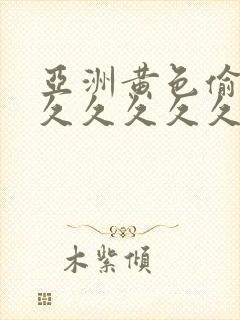 亞洲黄色偷
久久久久久
木紫傾